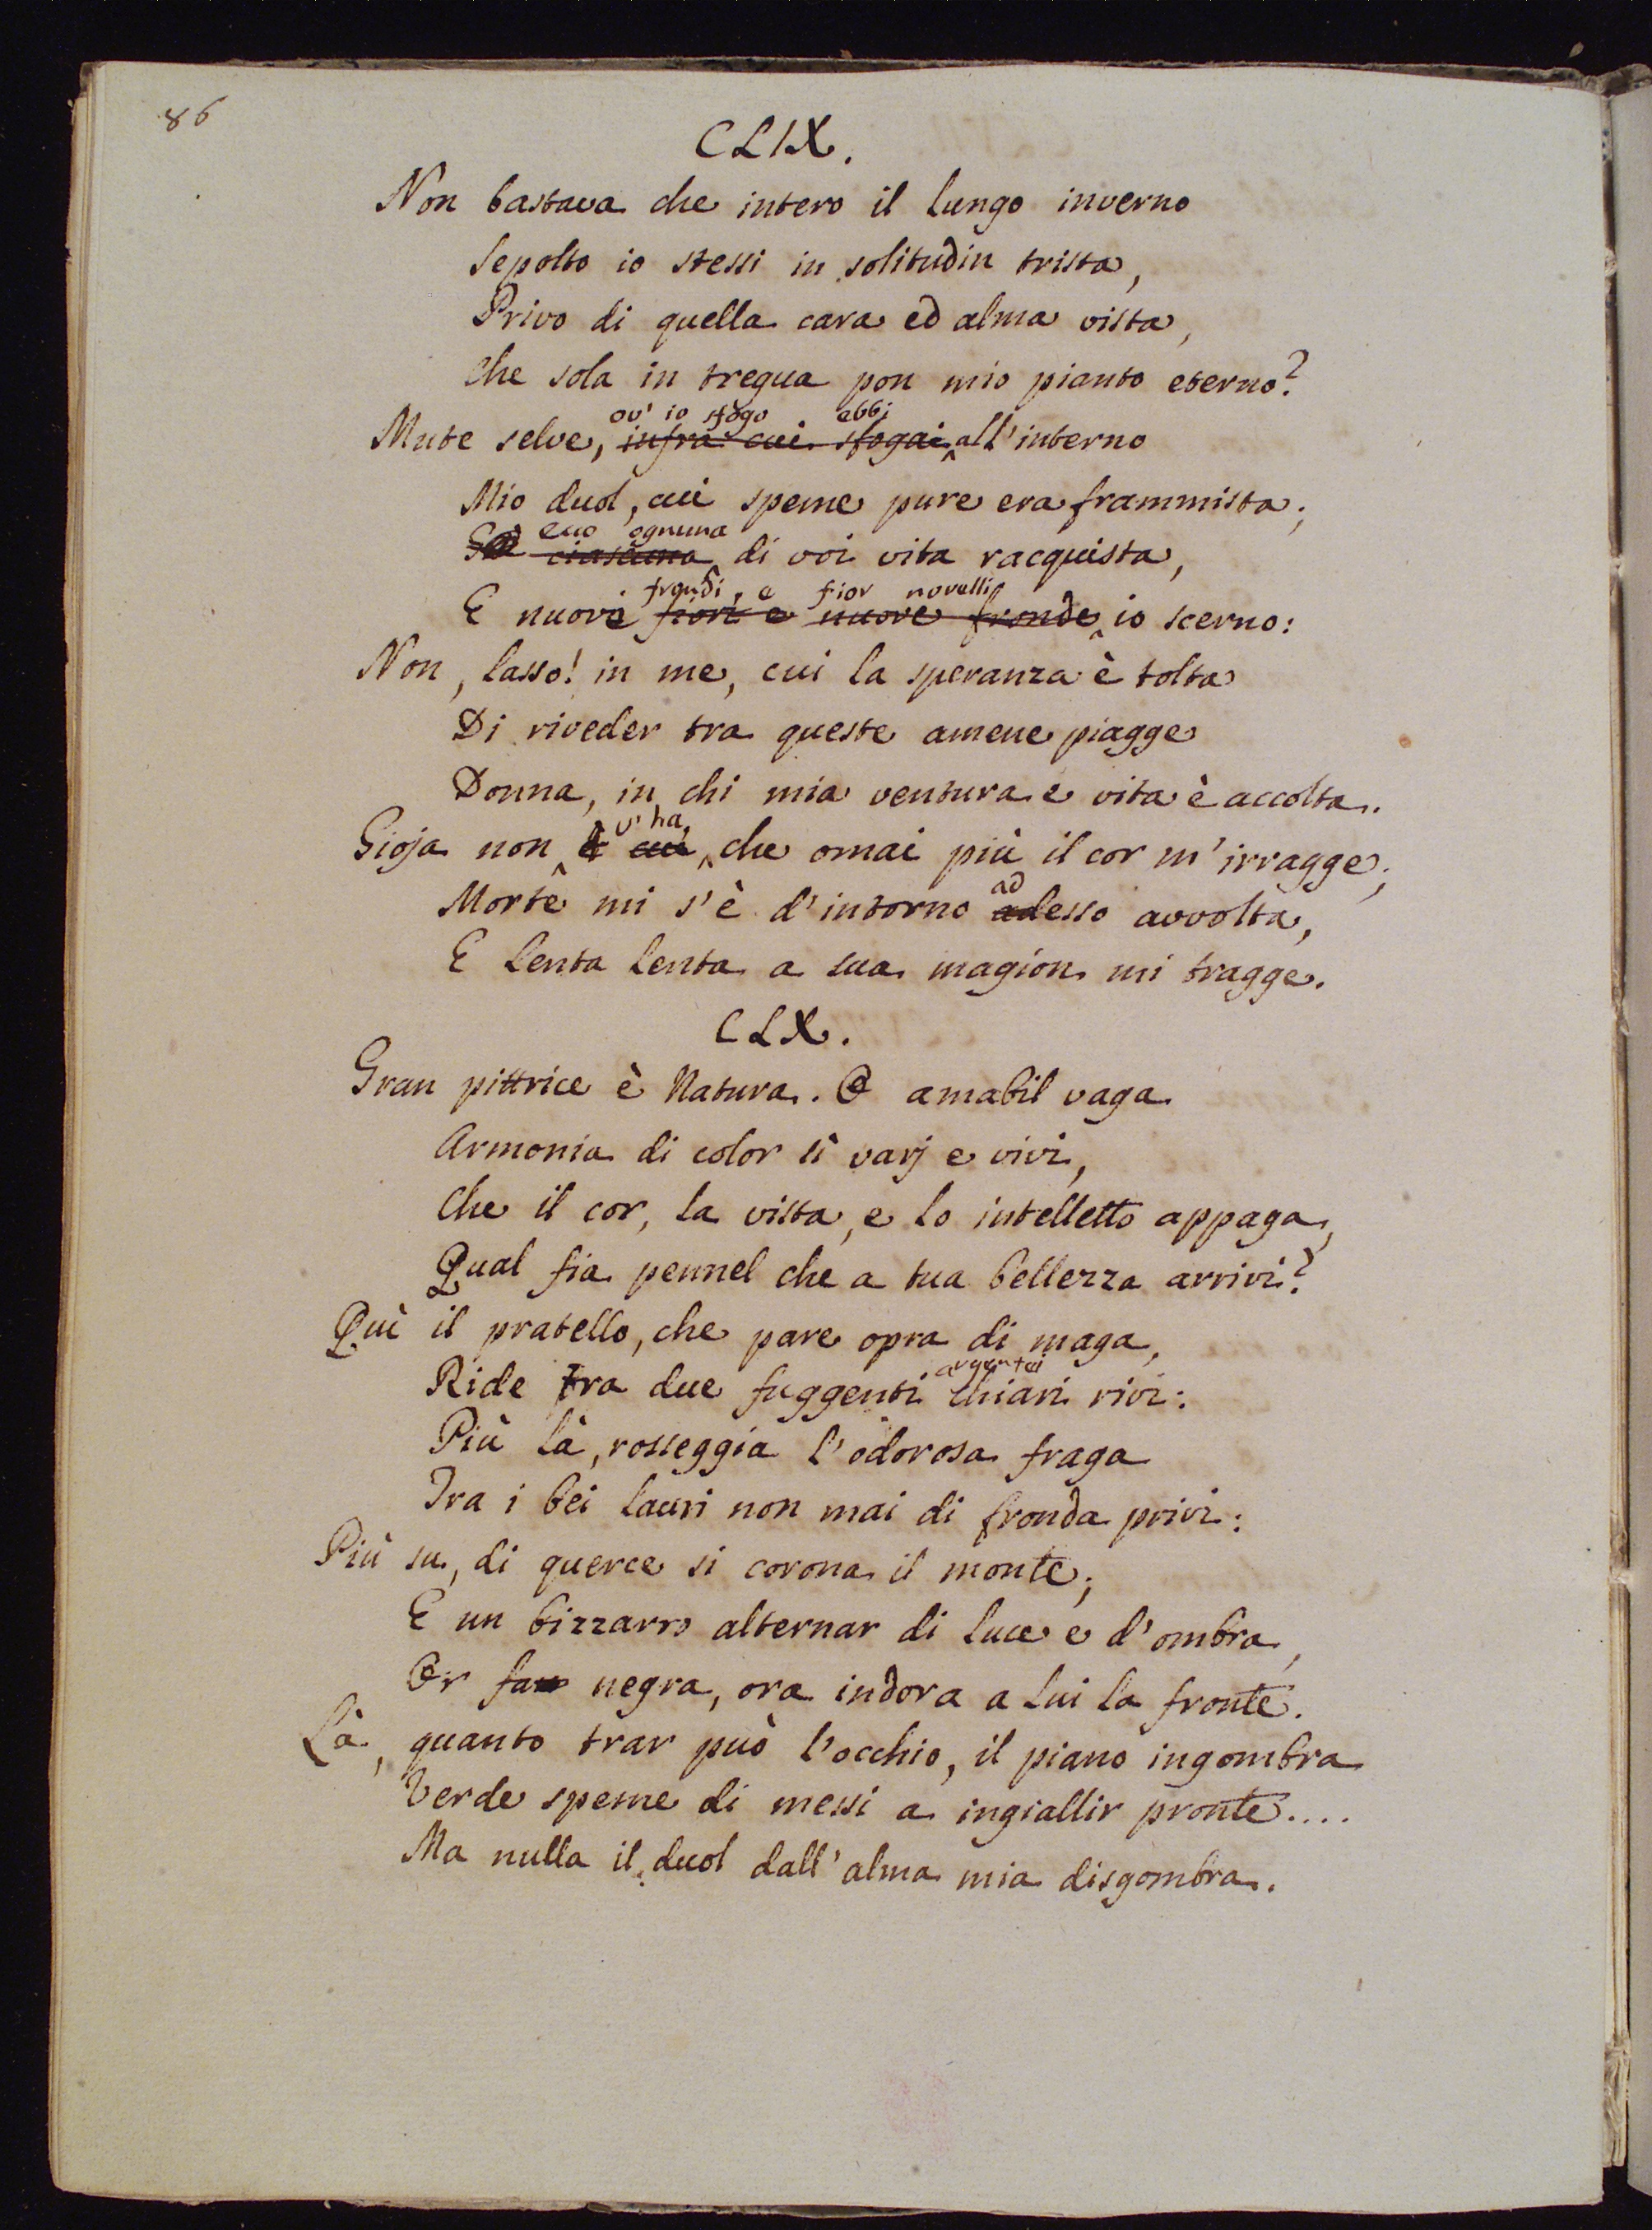 86
CLIX.
Non bastava che intero il lungo inverno
Sepolto io stessi in solitudin trista,
Privo di quella cara ed alma vista,
Che sola in tregua pon mio pianto eterno?
ov' io sfogo ebbi
Mute selve, infra cui sfogai all'interno
Mio duol, cui speme pure era frammista;
ecco ognuna
ciascuna di voi vita racquista,
frondi, e fior novelli
E nuove fiori e nuove fronde io scerno:
Non, lasso! in me, cui la speranza è tolta
Di riveder tra queste amene piagge
Donna, in chi mia ventura e vita è accolta.
v'ha,
Gioja non è cui che omai più il cor m'irragge;
ad
Morte mi s'è d'intorno adesso avvolta,
E lenta lenta a sua magion mi tragge.
CLX.
Gran pittrice è Natura. O amabil vaga
Armonia di color sì varj e vivi,
Che il cor, la vista, e lo intelletto appaga,
Qual fia pennel che a tua bellezza arrivi?
Quì il pratello, che pare opra di maga,
argentei
Ride tra due fuggenti chiari rivi:
Più là, rosseggia l'odorosa fraga
Tra i bei lauri non mai di fronda privi:
Più su, di querce si corona il monte;
E un bizzarro alternar di luce e d'ombra,
Or fan negra, ora indora a lui la fronte.
Là, quanto trar può l'occhio, il piano ingombra
Verde speme di messi a ingiallir pronte....
Ma nulla il duol dall'alma mia disgombra.